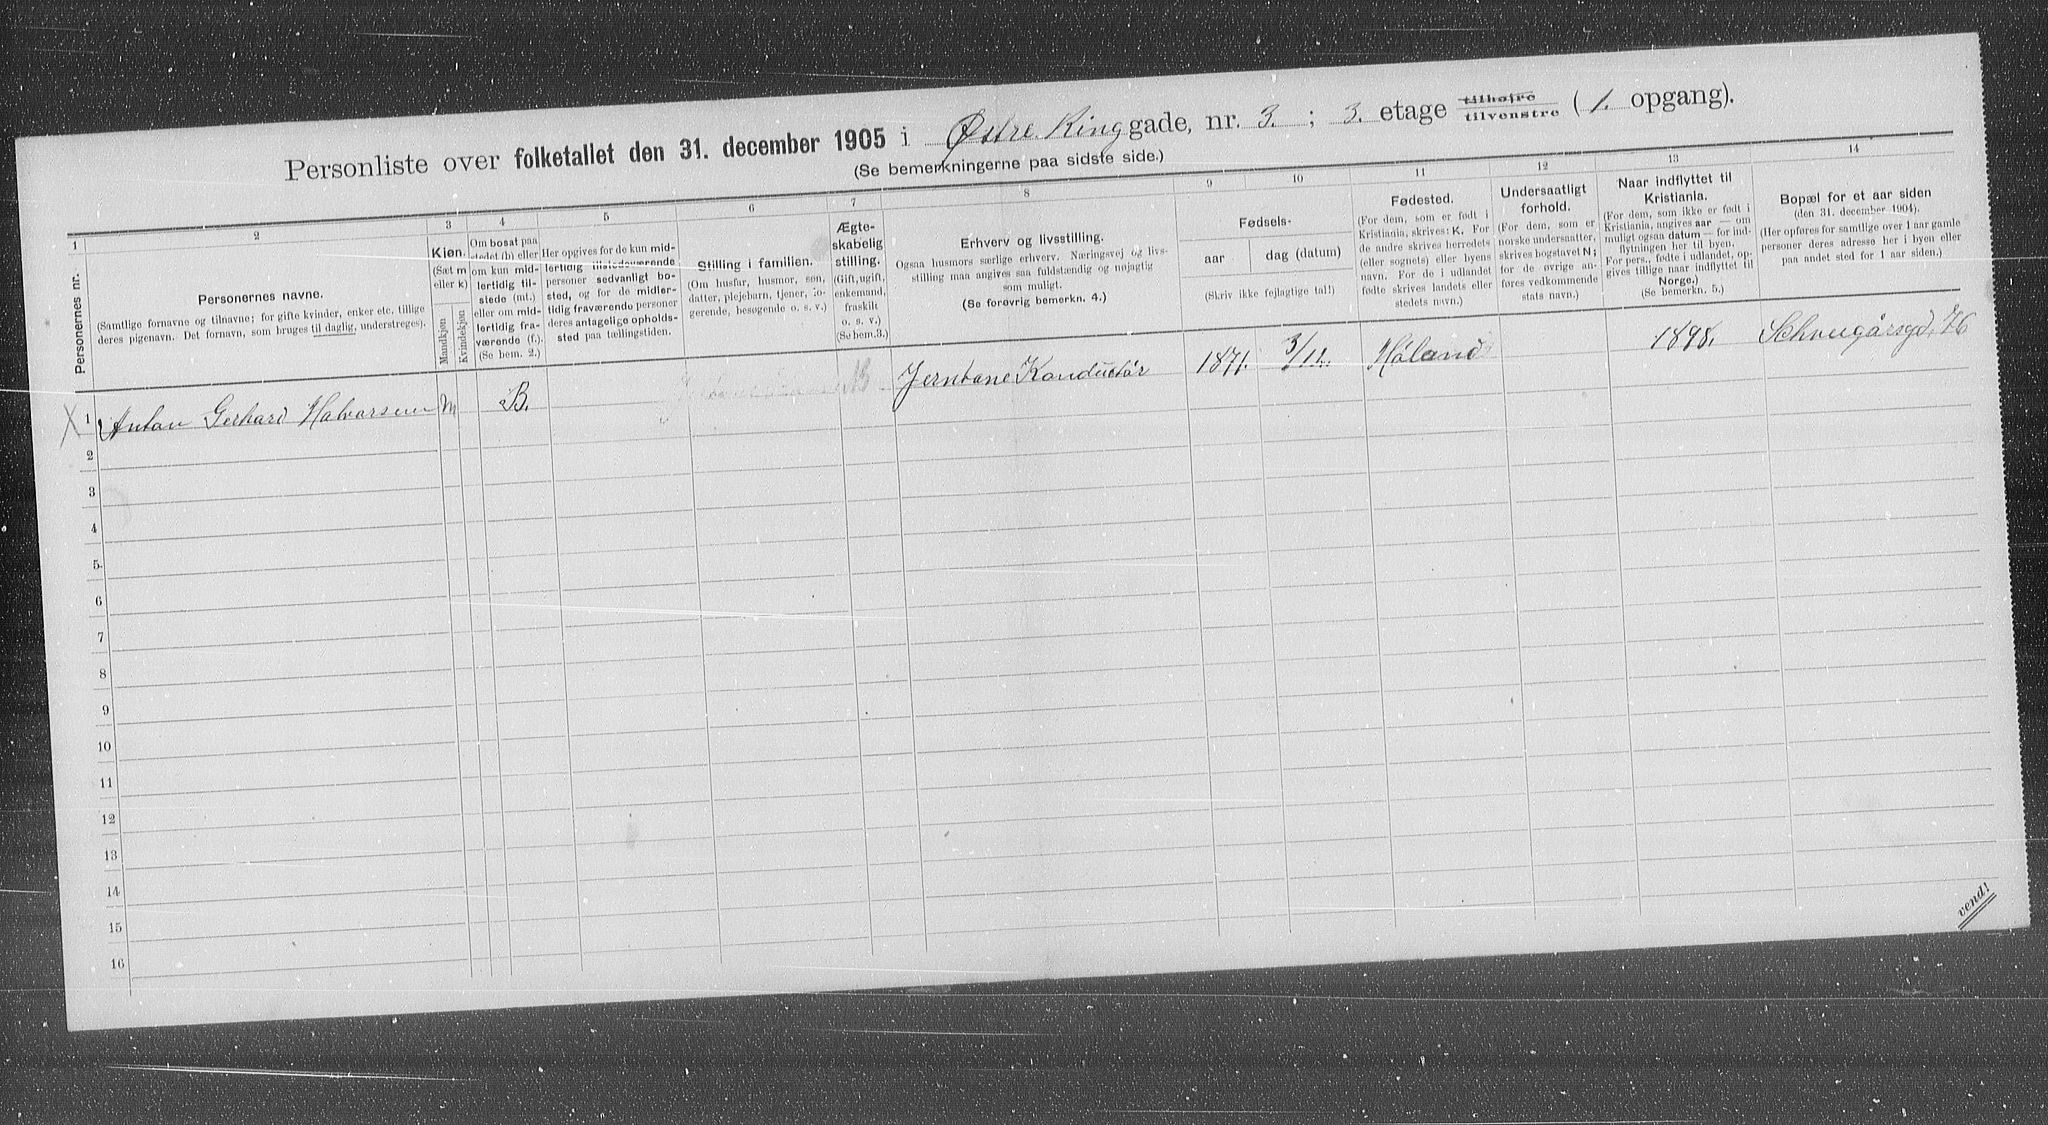 Personliste over folketallet den 31. december 1905 i Østre Ringgade, nr. 3. ; 3. etage tilhøjre tilvenstre ( 1. opgang).
(Se bemerkningerne paa sidste side.)
1 2 3 4 5 6 7 8 9 10 11 12 13 14
Personernes nr.
Personernes navne.
(Samtlige fornavne og tilnavne; for gifte kvinder, enker etc. tillige
deres pigenavn. Det fornavn, som bruges til daglig, understreges).
Kjøn.
(Sæt m
eller k)
Mandkjøn
Kvindekjøn
Om bosat paa
stedet (b) eller
om kun mid-
lertidig til-
stede (mt.)
eller om mid-
lertidig fra-
værende (f.).
(Se bem. 2.)
Her opgives for de kun mid-
lertidig tilstedeværende
personer sedvanligt bo-
sted, og for de midler-
tidig fraværende personer
deres antagelige opholds-
sted paa tællingstiden.
Stilling i familien.
(Om husfar, husmor, søn,
datter, plejebarn, tjener, lo-
gerende, besøgende o. s. v.)
Ægte-
skabelig
stilling.
(Gift, ugift,
enkemand,
fraskilt
o. s. v.)
(Se bem. 3.)
Erhverv og livsstilling.
Ogsaa husmors særlige erhverv. Næringsvej og livs-
stilling maa angives saa fuldstændig og nøjagtig
som muligt.
(Se forøvrig bemerkn. 4.)
Fødsels-
aar
dag (datum)
(Skriv ikke fejlagtige tal!)
Fødested.
(For dem, som er født i
Kristiania, skrives: K. For
de andre skrives herredets
(eller sognets) eller byens
navn. For de i udlandet
fødte skrives landets eller
stedets navn.)
Undersaatligt
forhold.
(For dem, som er
norske undersaatter,
skrives bogstavet N;
for de øvrige an-
føres vedkommende
stats navn.)
Naar indflyttet til
Kristiania.
(For dem, som ikke er født i
Kristiania, angives aar — om
muligt ogsaa datum — for ind-
flytningen her til byen.
For pers., fødte i udlandet, op-
gives tillige naar indflyttet til
Norge.)
(Se bemerkn. 5.)
Bopæl for et aar siden
(den 31. december 1904).
(Her opføres for samtlige over 1 aar gamle
personer deres adresse her i byen eller
paa andet sted for 1 aar siden.)
X 1 Anton Gerhard Halvorsen m B. Jernbane Konductør 1871. 3/12. Høland 1898.
2
3
4
5
6
7
8
9
10
11
12
13
14
15
16
vend!